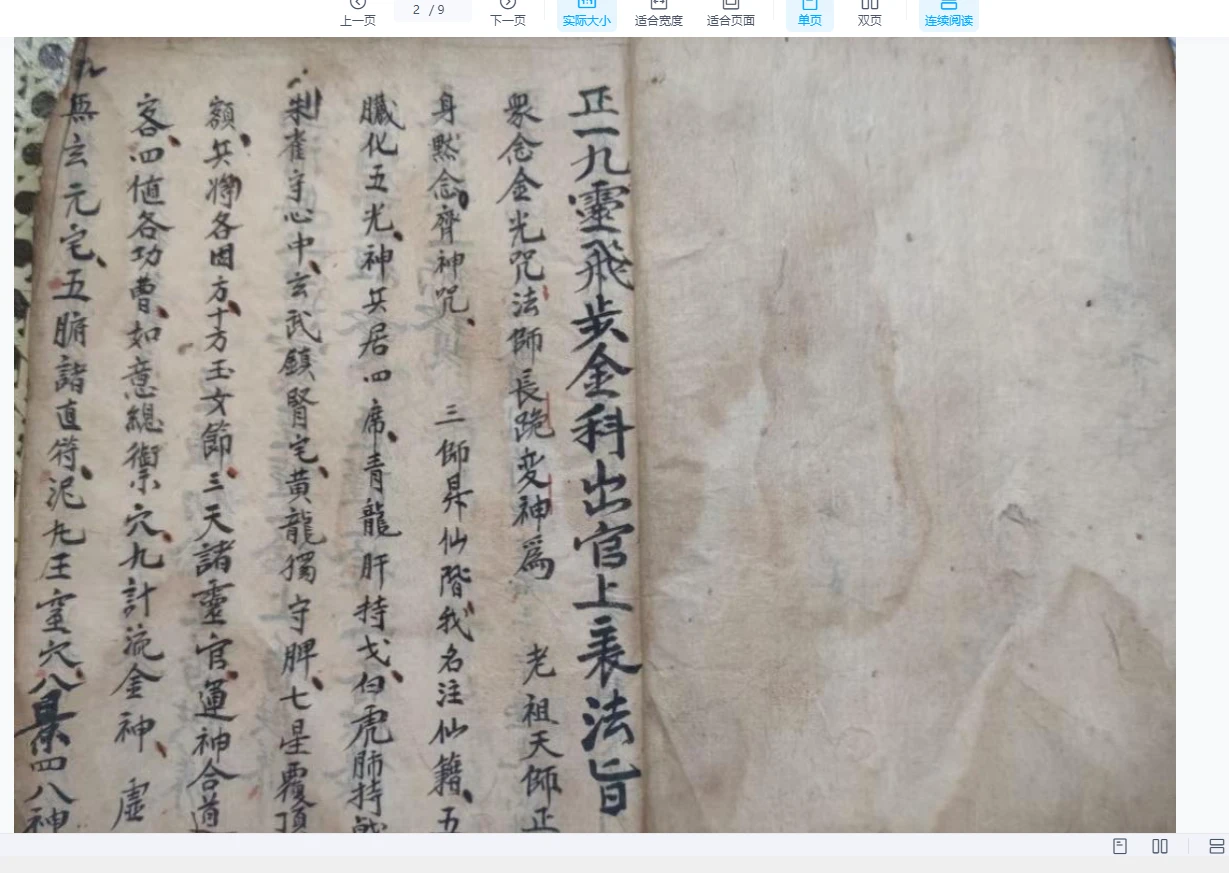 上一页
2 / 9
下一页
实际大小
适合宽度
适合页面
单页
双页
连续阅读
正一九靈飛步金科出官上表法旨
衆念金光咒法師長跪变神爲 老祖天師正
身黙念齊神咒 三師昇仙階我名注仙籍五
臟化五光神兵居四席青龍肝持戈白虎肺持
朱雀守心中玄武鎮腎宅黄龍獨守脾七星覆頂
額兵將各因方十方玉女節三天諸靈官運神合道
客四值各功曹如意總禦穴九計流金神 虛
無玄元宅五腑諸直符泥丸王室穴八景四八神